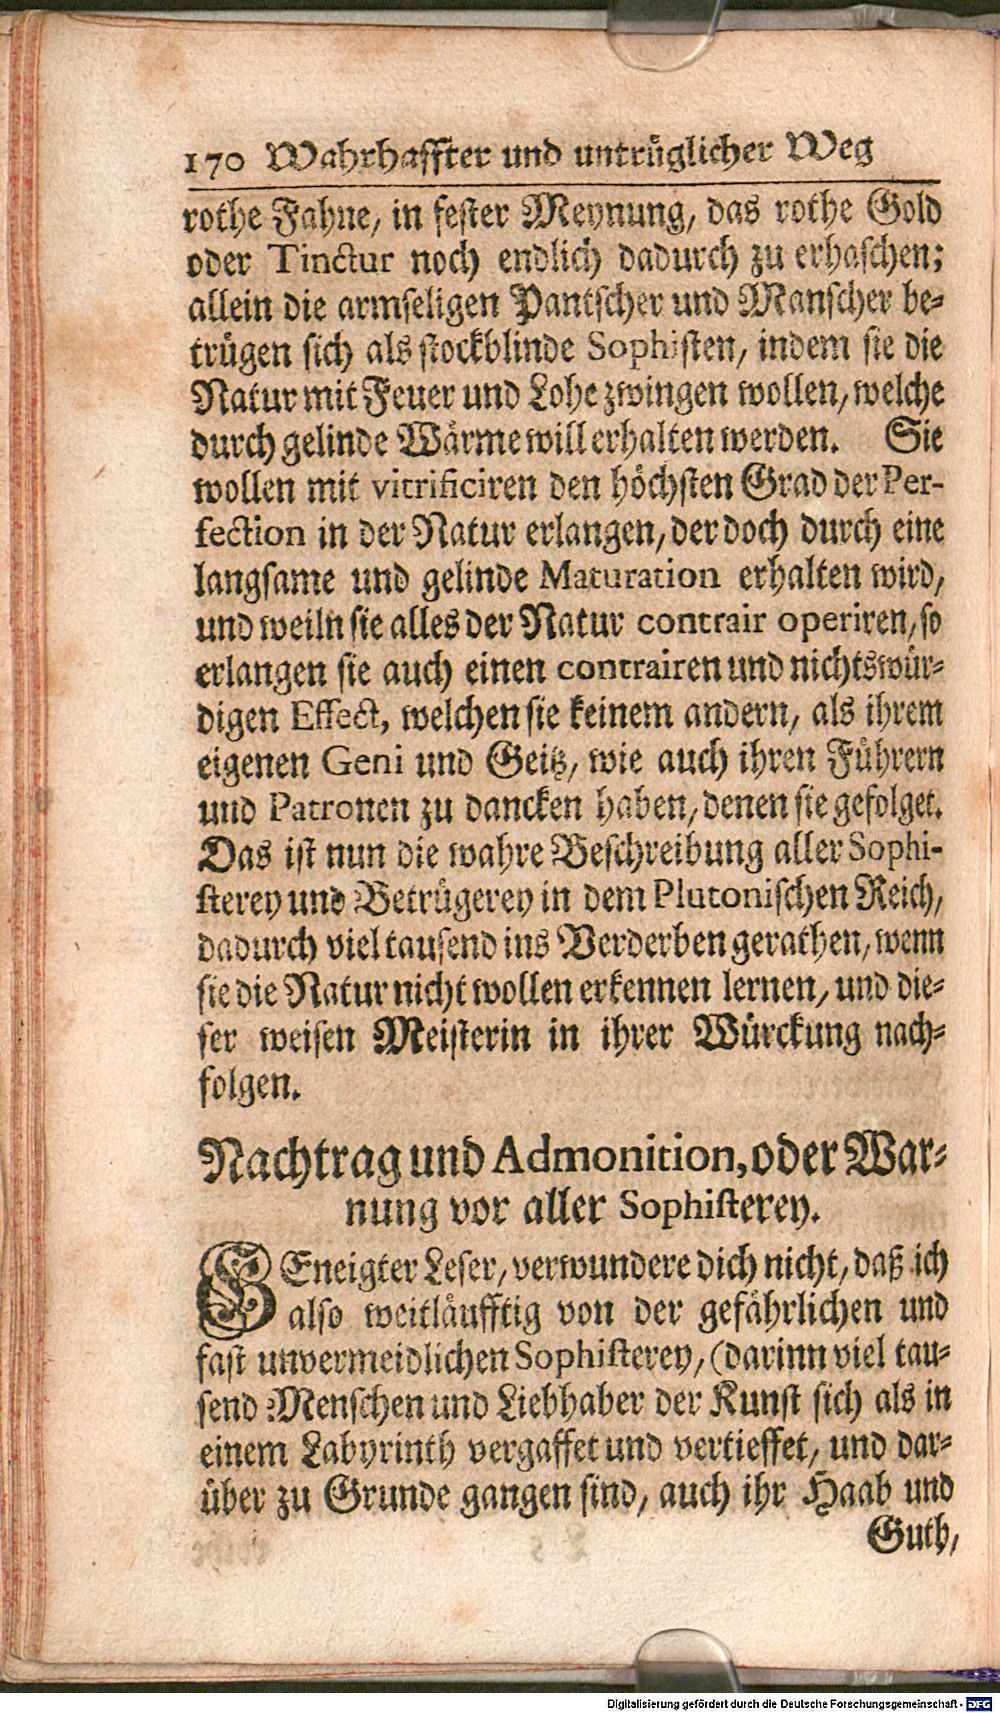 170 Wahrhaffter und untrüglicher Weg
rothe Fahne, in fester Meynung, das rothe Gold
oder Tinctur noch endlich dadurch zu erhaschen;
allein die armseligen Pantscher und Manscher be-
trügen sich als stockblinde Sophisten, indem sie die
Natur mit Feuer und Lohe zwingen wollen, welche
durch gelinde Wärme will erhalten werden. Sie
wollen mit vitrificiren den höchsten Grad der Per-
fection in der Natur erlangen, der doch durch eine
langsame und gelinde Maturation erhalten wird,
und weiln sie alles der Natur contrair operiren, so
erlangen sie auch einen contrairen und nichtswür-
digen Effect, welchen sie keinem andern, als ihrem
eigenen Geni und Geitz, wie auch ihren Führern
und Patronen zu dancken haben, denen sie gefolget.
Das ist nun die wahre Beschreibung aller Sophi-
sterey und Betrügerey in dem Plutonischen Reich,
dadurch viel tausend ins Verderben gerathen, wenn
sie die Natur nicht wollen erkennen lernen, und die-
ser weisen Meisterin in ihrer Würckung nach-
folgen.
Nachtrag und Admonition, oder War-
nung vor aller Sophisterey.
GEneigter Leser, verwundere dich nicht, daß ich
also weitläufftig von der gefährlichen und
fast unvermeidlichen Sophisterey, (darinn viel tau-
send Menschen und Liebhaber der Kunst sich als in
einem Labyrinth vergaffet und vertieffet, und dar-
über zu Grunde gangen sind, auch ihr Haab und
Guth,
Digitalisierung gefördert durch die Deutsche Forschungsgemeinschaft - DFG